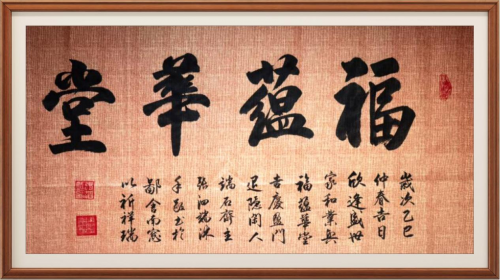 福蘊華堂
歲次乙巳
仲春吉日
欣逢盛世
家和業興
福蘊華堂
吉慶盈門
隱閑人
瑞石齋主
張泗瑞沐
手敬書於
鄙舍南窓
以祈祥瑞